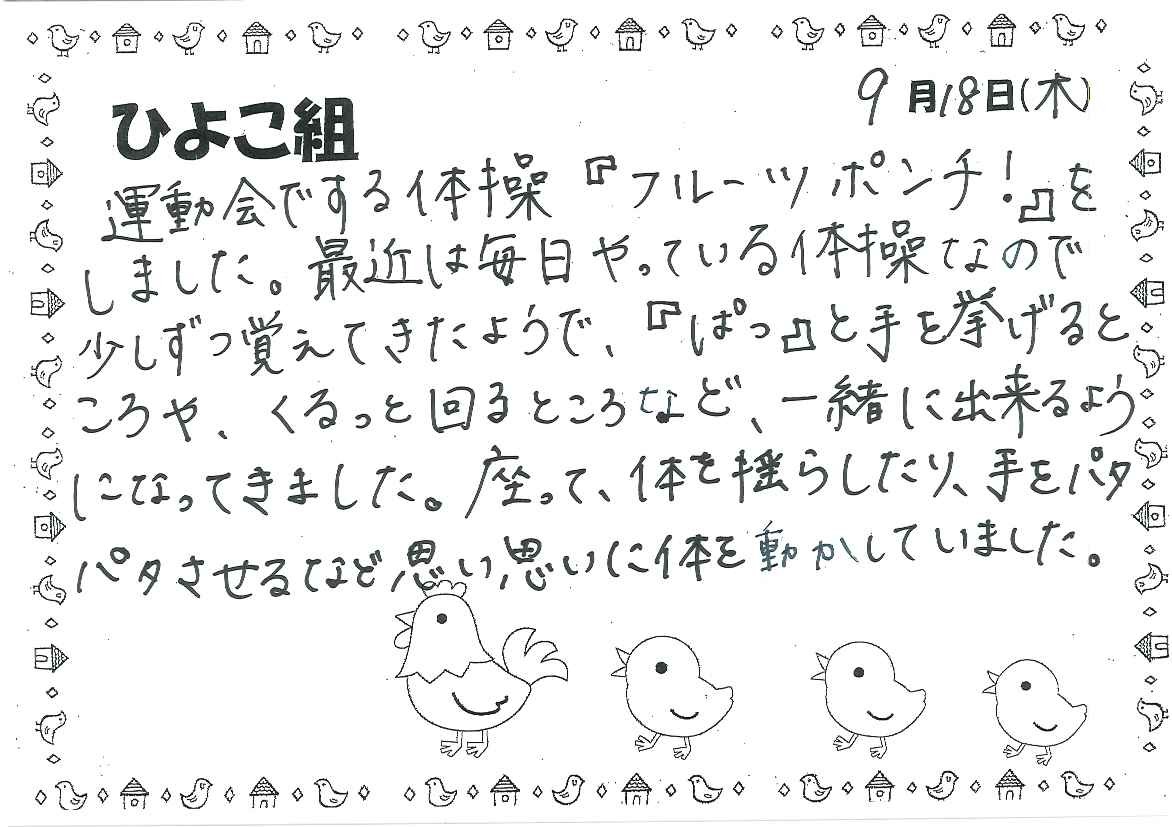 9月18日(木)
ひよこ組
運動会でする体操『フルーツポンチ!』を
しました。最近は毎日やっている体操なので
少しずつ覚えてきたようで、『ぱっ』と手を挙げると
ころや、くるっと回るところなど、一緒に出来るよう
になってきました。座って、体を揺らしたり、手をパタ
パタさせるなど思い思いに体を動かしていました。